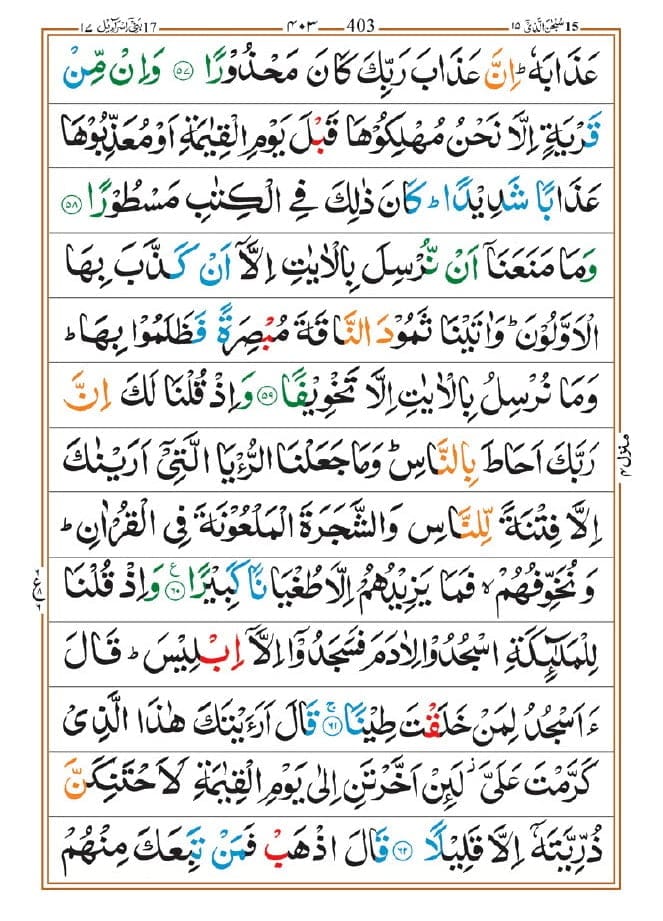 15 سُبْحٰنَ الَّذِیْۤ ١٥ 403 ۴۰۳ 17 بَنِیْۤ اِسْرَآءِیْل ١٧
عَذَابَهٗ ؕ اِنَّ عَذَابَ رَبِّكَ كَانَ مَحْذُوْرًا ۝۵۷ وَاِنْ مِّنْ
قَرْيَةٍ اِلَّا نَحْنُ مُهْلِكُوْهَا قَبْلَ يَوْمِ الْقِيٰمَةِ اَوْ مُعَذِّبُوْهَا
عَذَابًا شَدِيْدًا ؕ كَانَ ذٰلِكَ فِي الْكِتٰبِ مَسْطُوْرًا ۝۵۸
وَمَا مَنَعَنَاۤ اَنْ نُّرْسِلَ بِالْاٰيٰتِ اِلَّاۤ اَنْ كَذَّبَ بِهَا
الْاَوَّلُوْنَ ؕ وَاٰتَيْنَا ثَمُوْدَ النَّاقَةَ مُبْصِرَةً فَظَلَمُوْا بِهَا ؕ
وَمَا نُرْسِلُ بِالْاٰيٰتِ اِلَّا تَخْوِيْفًا ۝۵۹ وَاِذْ قُلْنَا لَكَ اِنَّ
رَبَّكَ اَحَاطَ بِالنَّاسِ ؕ وَمَا جَعَلْنَا الرُّءْيَا الَّتِيْۤ اَرَيْنٰكَ
اِلَّا فِتْنَةً لِّلنَّاسِ وَالشَّجَرَةَ الْمَلْعُوْنَةَ فِي الْقُرْاٰنِ ؕ
وَنُخَوِّفُهُمْ ۙ فَمَا يَزِيْدُهُمْ اِلَّا طُغْيَانًا كَبِيْرًا ۝۶۰ ع وَاِذْ قُلْنَا
لِلْمَلٰٓئِكَةِ اسْجُدُوْا لِاٰدَمَ فَسَجَدُوْۤا اِلَّاۤ اِبْلِيْسَ ؕ قَالَ
ءَاَسْجُدُ لِمَنْ خَلَقْتَ طِيْنًا ۚ ۝۶۱ قَالَ اَرَءَيْتَكَ هٰذَا الَّذِيْ
كَرَّمْتَ عَلَيَّ ؗ لَئِنْ اَخَّرْتَنِ اِلٰى يَوْمِ الْقِيٰمَةِ لَاَحْتَنِكَنَّ
ذُرِّيَّتَهٗۤ اِلَّا قَلِيْلًا ۝۶۲ قَالَ اذْهَبْ فَمَنْ تَبِعَكَ مِنْهُمْ
منزل ۴